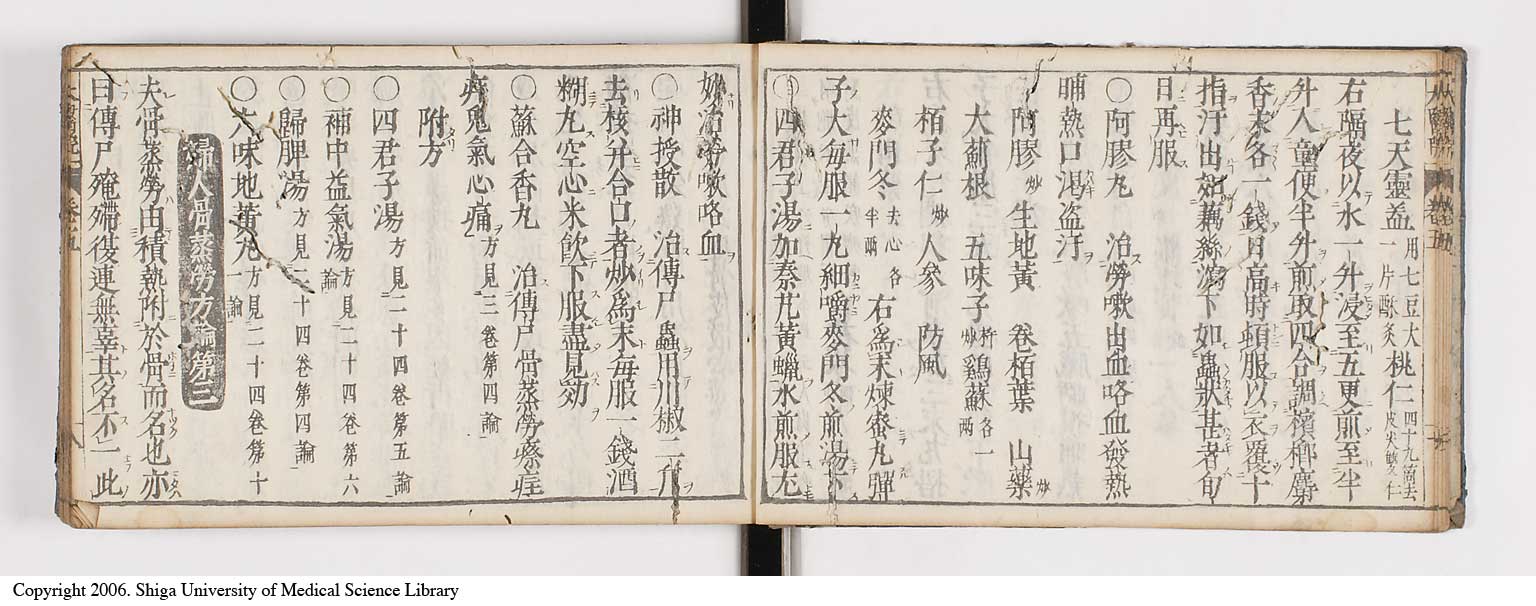 七天靈蓋 用七豆大一片酥炙 桃仁 四十九箇去皮尖雙仁
右隔夜以水一升浸至五更煎至半
升入童便半升煎取四合調檳榔麝
香末各一錢月高時頓服以衣覆十
指汗出如藕絲瀉下如蟲狀甚者旬
日再服
○阿膠丸 治勞嗽出血咯血發熱
晡熱口渴盜汗
阿膠 炒 生地黃 卷栢葉 山藥 炒
大薊根 五味子 杵炒 鷄蘇 各一兩
栢子仁 炒 人參 防風
麥門冬 去心各半兩 右爲末煉蜜丸彈
子大每服一丸細嚼麥門冬煎湯下
○四君子湯加秦艽黃蠟水煎服尤
妙治勞嗽咯血
○神授散 治傳尸蟲用川椒二升
去核并合口者炒爲末每服一錢酒
糊丸空心米飲下服盡見効
○蘇合香丸 治傳尸骨蒸勞瘵疰
疰鬼氣心痛 方見三卷第四論
附方
○四君子湯 方見二十四卷第五論
○補中益氣湯 方見二十四卷第六論
○歸脾湯 方見二十四卷第四論
○六味地黃丸 方見二十四卷第十一論
婦人骨蒸勞方論第三
夫骨蒸勞由積熱附於骨而名也亦
曰傳尸殗殜復連無辜其名不一此
Copyright 2006. Shiga University of Medical Science Library